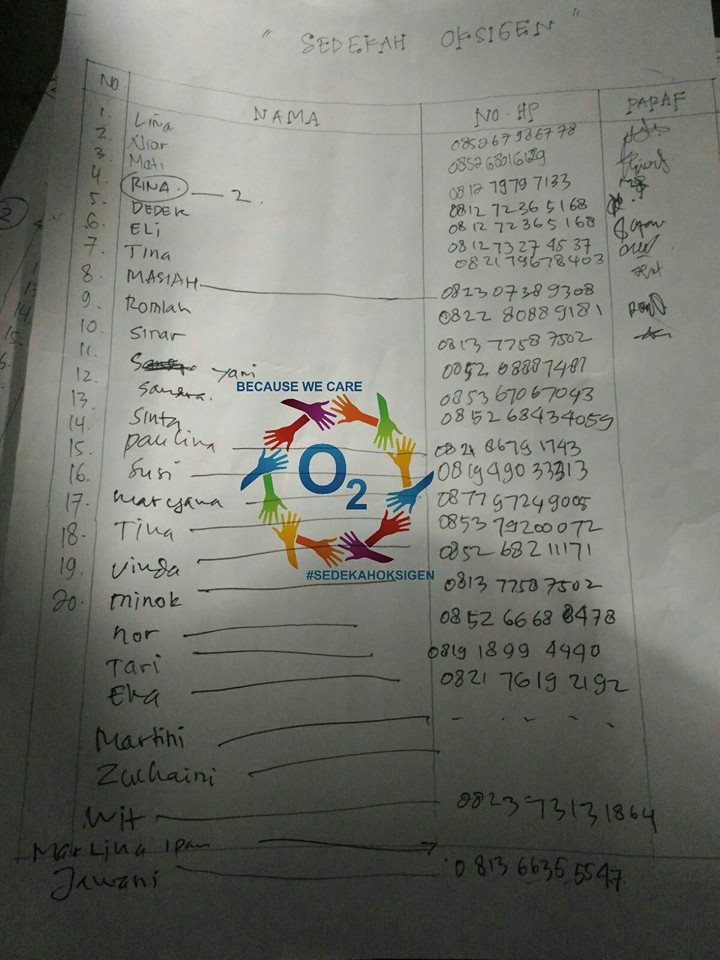 " SEDEKAH OKSIGEN "
NO NAMA NO. HP PARAF
1. Lina 0852 67986778
2. Niar
3. Mati 0812 7979 7133
4. RINA. — 2. 0812 72365168
5. DEDEK 0812 72365168
6. ELI 0812 7327 4537
7. Tina 0821 79678403
8. MASIAH 0823 0738 9308
9. Romlah 0822 8088 9181
10. Sinar 0813 7758 7502
11. Yani
12. Sandra. 0853 67067043
13. Sinta 0852 68434059
14. Paulina 0821 8679 1743
15. Susi 0819490 33313
16. Maryana 0877 97249005
17. Tina 0853 79200072
18. Vinda 0852 68211171
19. Minok 0813 77587502
20. Nor 0852 6668 8478
Tari 0819 1899 4440
Eka 0821 7619 2192
Martini - - - -
Zuchaini
Wit 082397 3131864
Marlina Ipan
Jewani 0813 6635 5547
BECAUSE WE CARE
O2
#SEDEKAHOKSIGEN
2